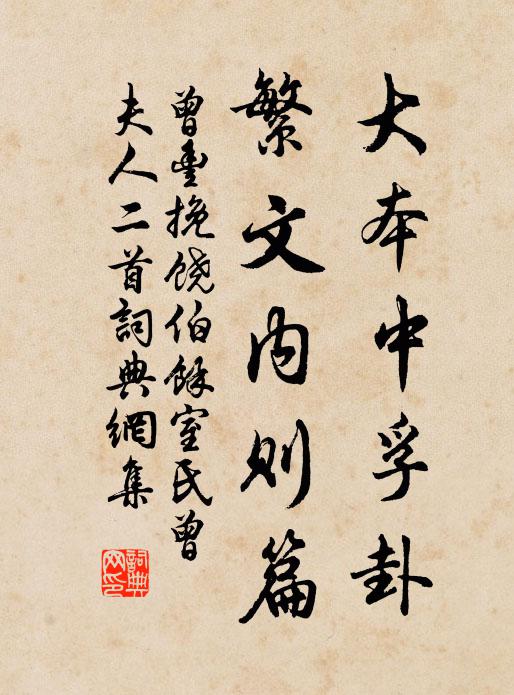 大本中孚卦
繁文内则篇
曾豐挽饶伯餘室氏曾
夫人二首詞典網集
詞典网印